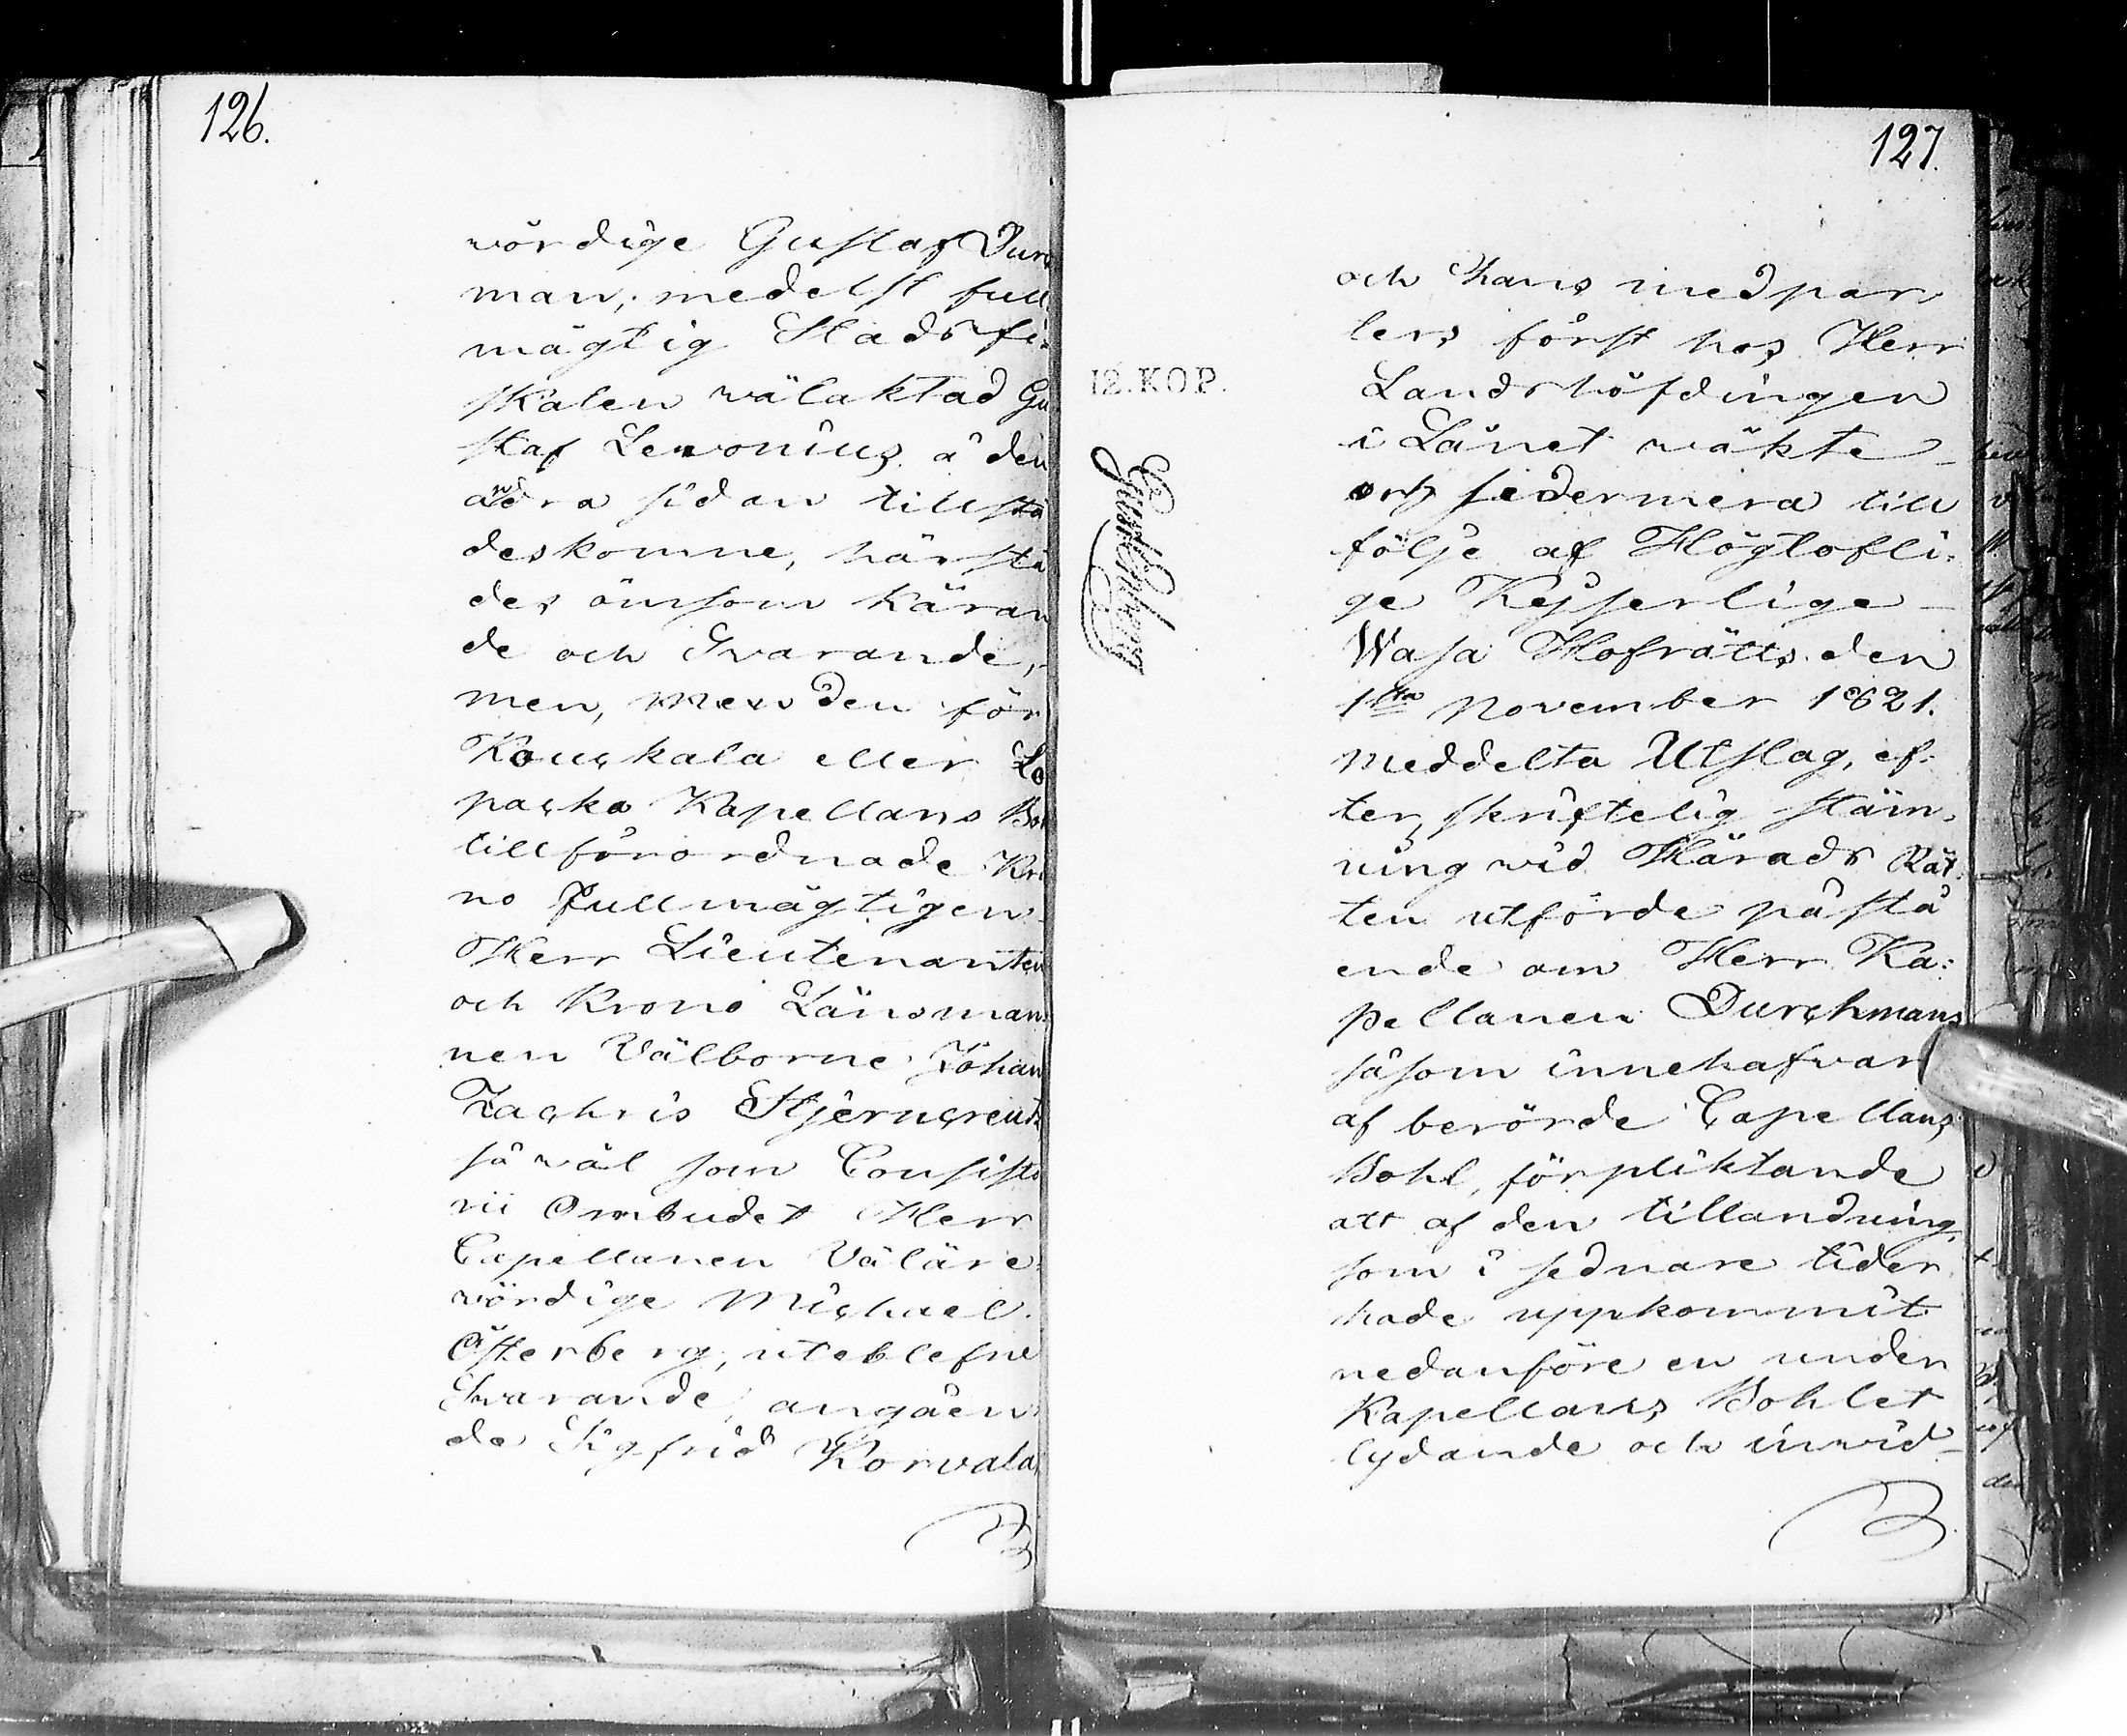 126.
wördige Gustaf Durch
man, medelst full
mägtig Stadsfi-
skalen wälaktad Gu
staf Levonius å den
andra sidan tillstä
deskomne, härstä
des ömsom Käran
de och Svarande,
men, men den för
Kouckala eller Lo
packa Kapellans Bol
tillförordnade Kro
no Fullmägtigen
Herr Lieutenanten
och Krono Länsman
nen Välborne Johan
Zachris Stjerncreutz
så wäl som Consisto
rii Ombudet Herr
Capellanen Väläre
wördige Michael
Österberg, uteblefne
Svarande, angåen
de Sigfrid Korvala,
127.
12. KOP.
och hans medpar
ters först hos Herr
Landshöfdingen
i Länet wäkte
och sedermera till
följe af Höglofli-
ge Kejserlige
Wasa Hofrätts den
1sta November 1821.
meddelta Utslag, ef-
ter skriftelig stäm-
ning wid Härads Rät-
ten utförde påstå
ende om Herr Ka-
pellanen Durchmans
såsom innehafvare
af berörde Capellans
Bohl, förpliktande
att af den tillandning,
som i sednare tider
hade uppkommit
nedanföre en under
Kapellans Bohlet
lydande och inwid